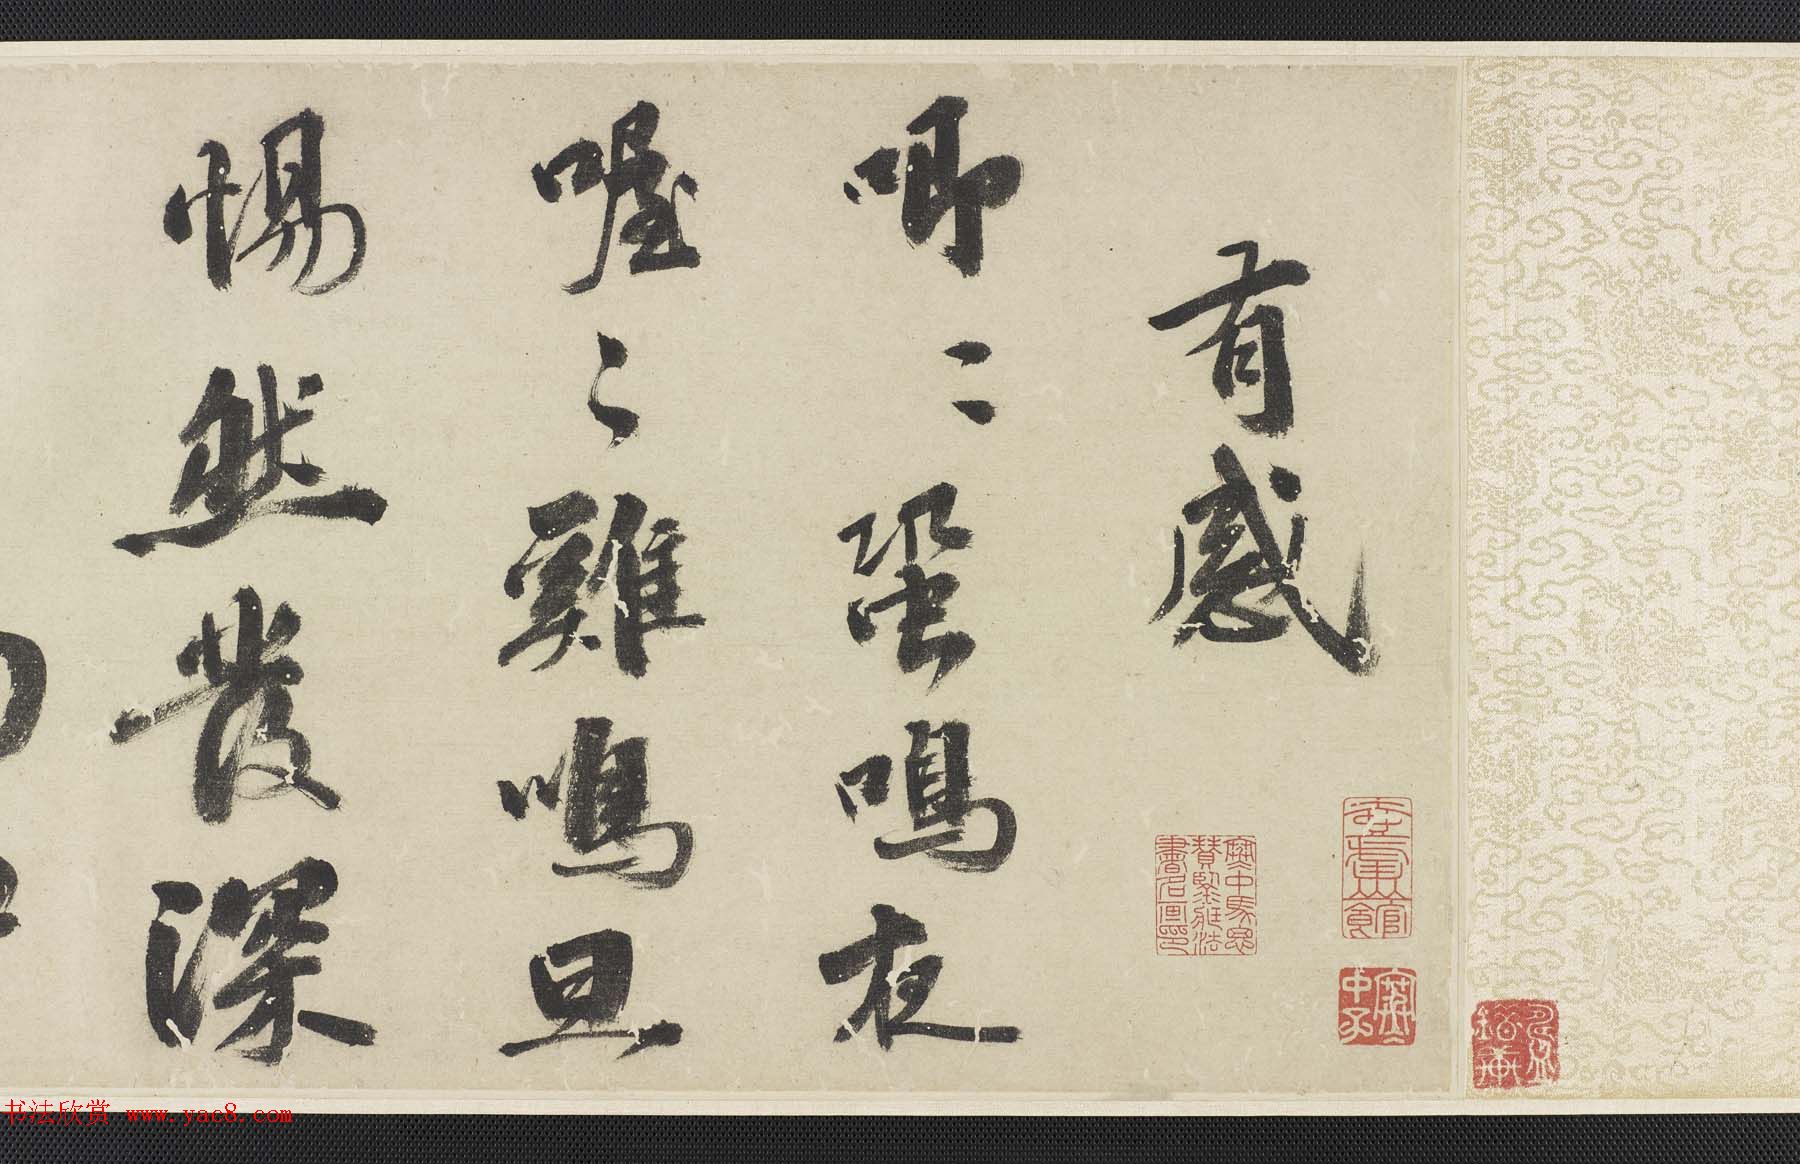 有感
唧〻蛩鳴夜
喔〻雞鳴旦
惕然發深
书法欣赏 www.yac8.com